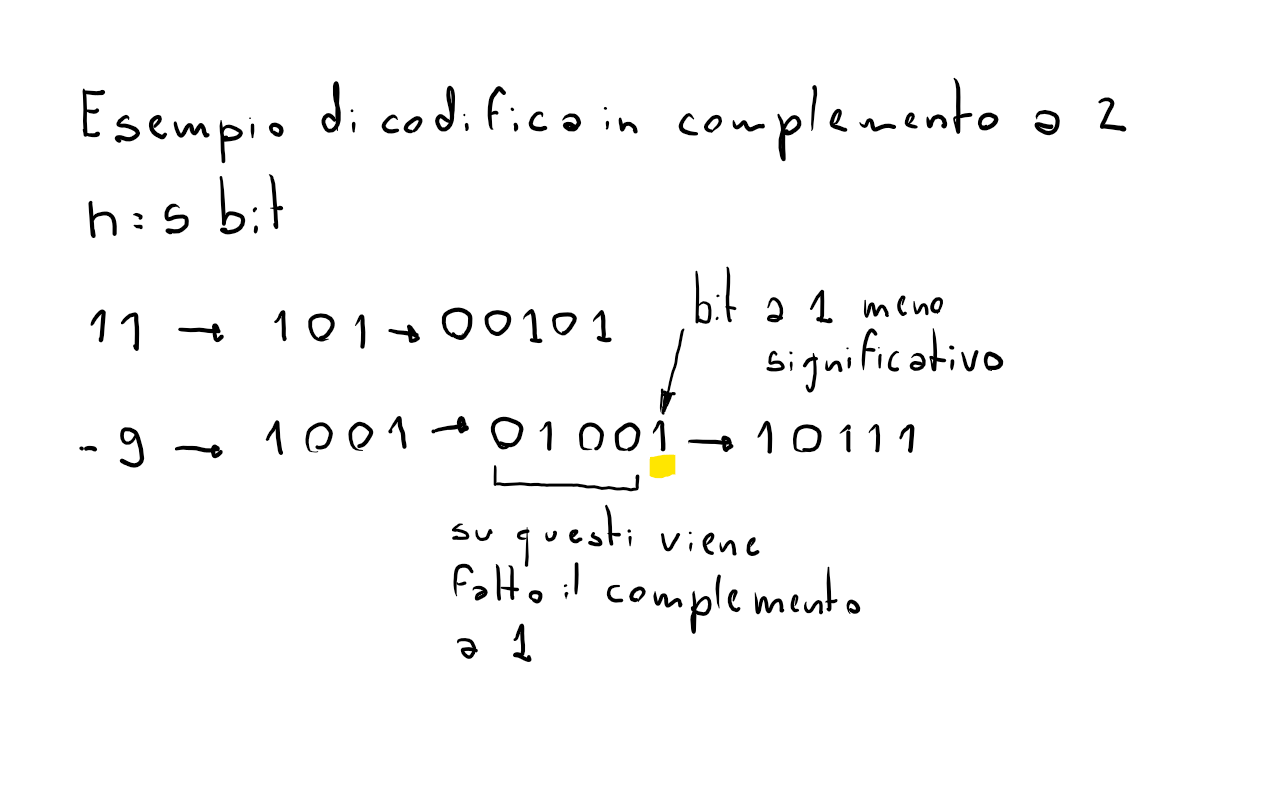 Esempio di codifica in complemento a 2
n=5 bit
11 → 101 → 00101
bit a 1 meno
significativo
-9 → 1001 → 01001 → 10111
su questi viene
fatto il complemento
a 1